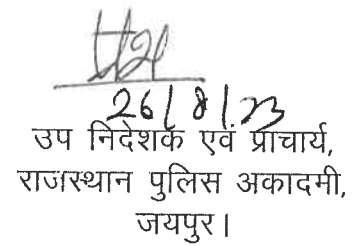 26/8/23
उप निदेशक एवं प्राचार्य,
राजस्थान पुलिस अकादमी,
जयपुर।